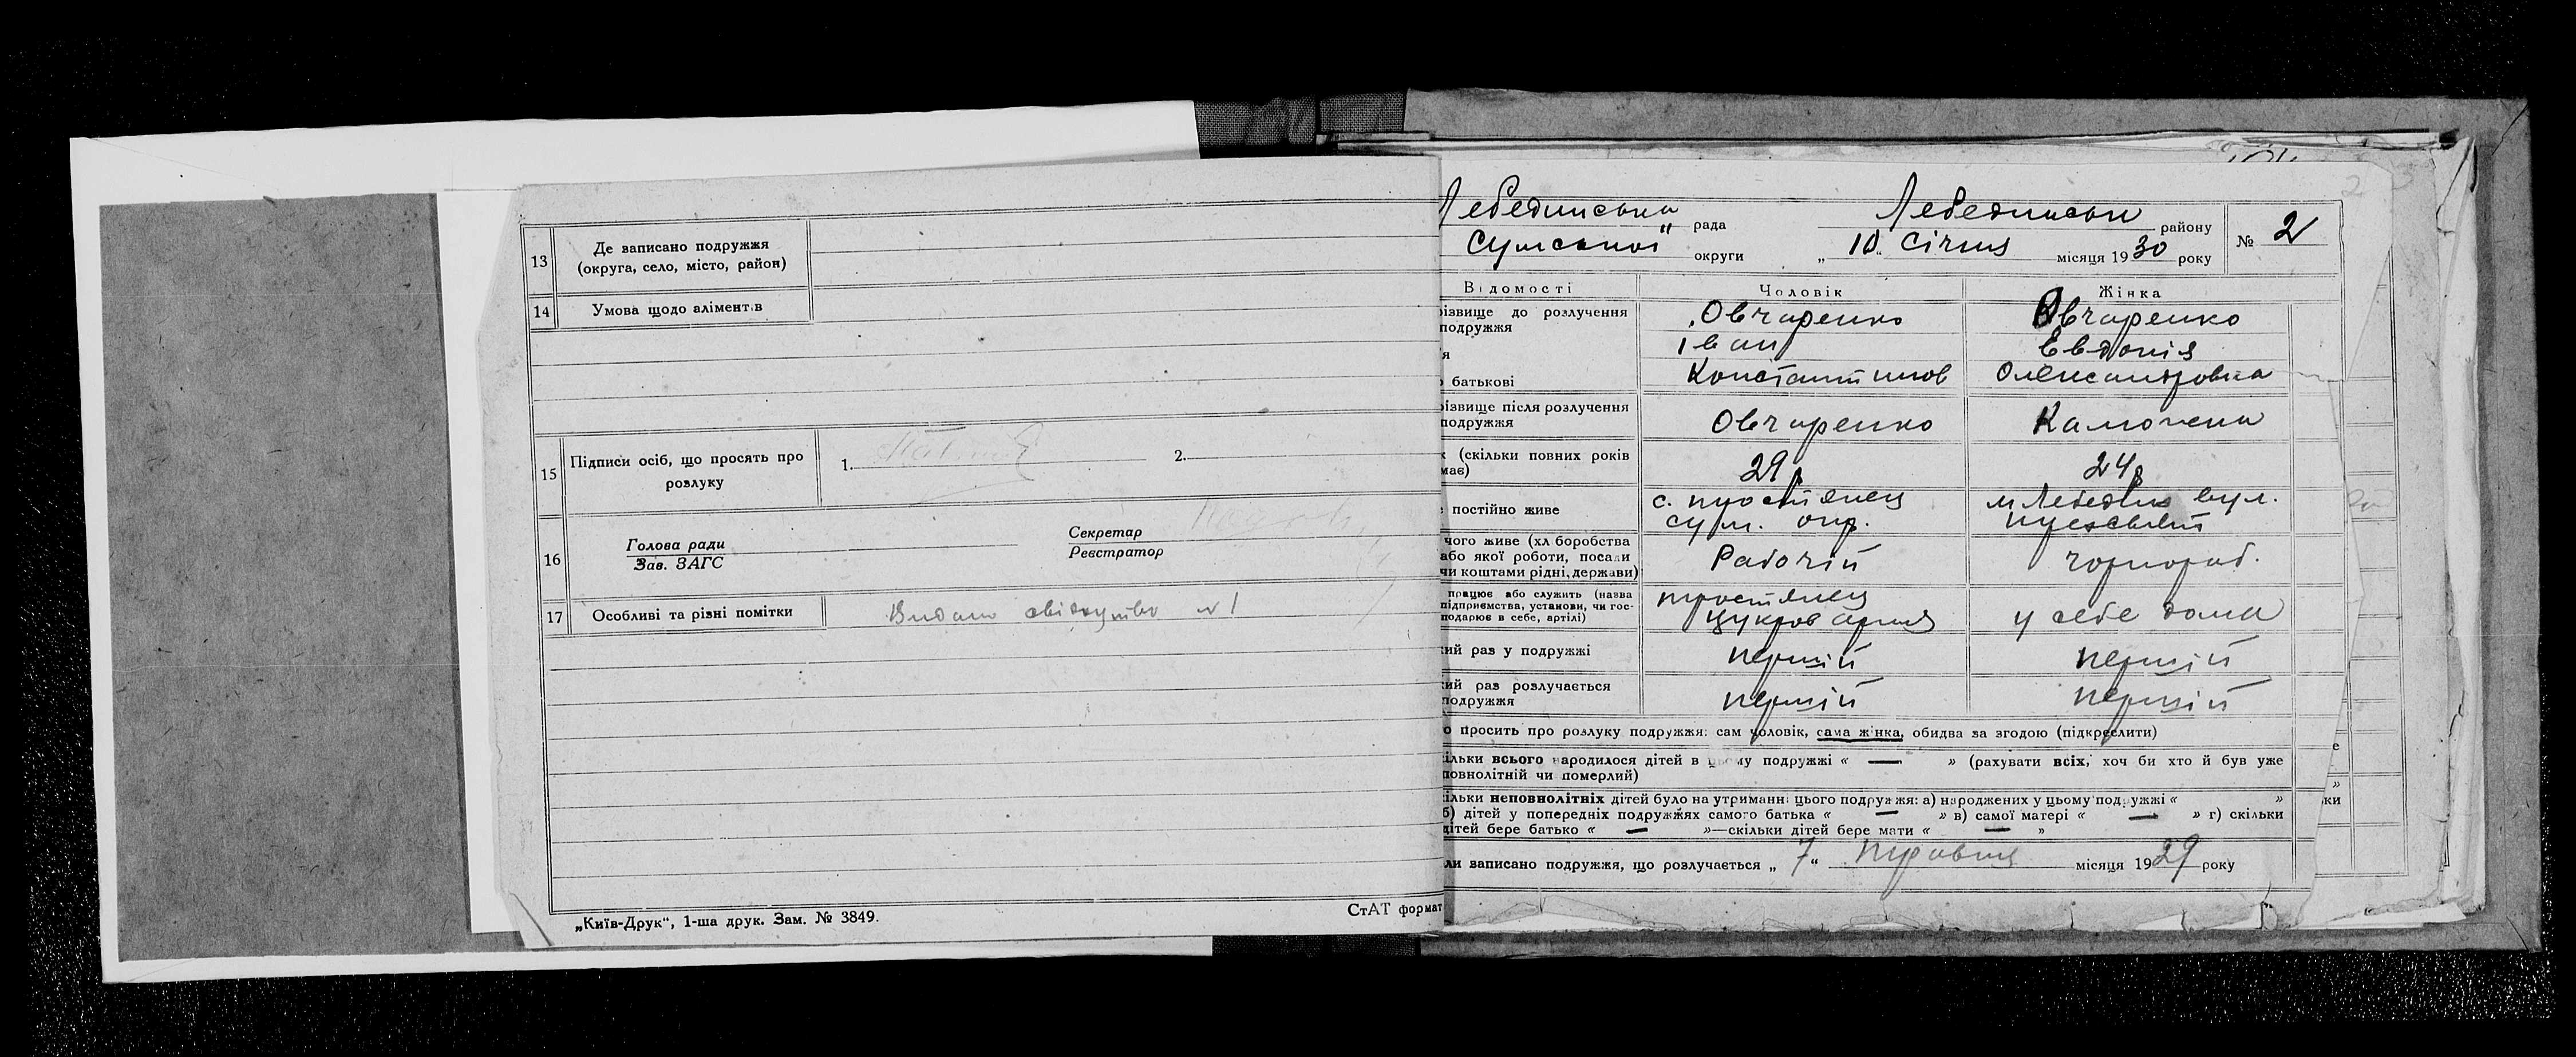 13 Де записано подружжя
(округа, село, місто, район)
14 Умова щодо аліментів
15 Підписи осіб, що просять про
розлуку
1. 2.
16 Голова ради
Зав. ЗАГС
Секретар
Реєстратор
17 Особливі та різні помітки Видано свідоцтво № 1
„Київ-Друк“, 1-ша друк. Зам. № 3849.
СтАТ формат
Лебединська рада Лебединськ району № 2
Сумської округи „10“ Січня місяця 1930 року
Відомості Чоловік Жінка
різвище до розлучення
подружжя
Овчаренко Овчаренко
я Іван Евдокія
батькові Константинов Олександровна
різвище після розлучення
подружжя
Овчаренко
(скільки повних років
має)
29 р 24 р
постійно живе
с. Тростянец м Лебедин вул.
Сум. окр.
чого живе (хліборобства
або якої роботи, посади
чи коштами рідні, держави)
Рабочій чорнораб.
працює або служить (назва
підприємства, установи, чи гос-
подарює в себе, артілі)
Тростянец
Цукроварня у себе дома
кий раз у подружжі першій першій
кий раз розлучається
подружжя
першій першій
о просить про розлуку подружжя: сам чоловік, сама жінка, обидва за згодою (підкреслити)
кільки всього народилося дітей в цьому подружжі « — » (рахувати всіх, хоч би хто й був уже
повнолітній чи померлий)
кільки неповнолітніх дітей було на утриманні цього подружжя: а) народжених у цьому подружжі « »
б) дітей у попередніх подружжях самого батька « — » в) самої матері « — » г) скільки
дітей бере батько « — »—скільки дітей бере мати « — »
ли записано подружжя, що розлучається „7“ місяця 1929 року